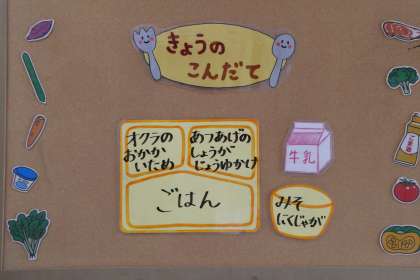 きょうの
こんだて
オクラの
おかか
いため
あつあげの
しょうが
じょうゆかけ
牛乳
ごはん
みそ
にくじゃが